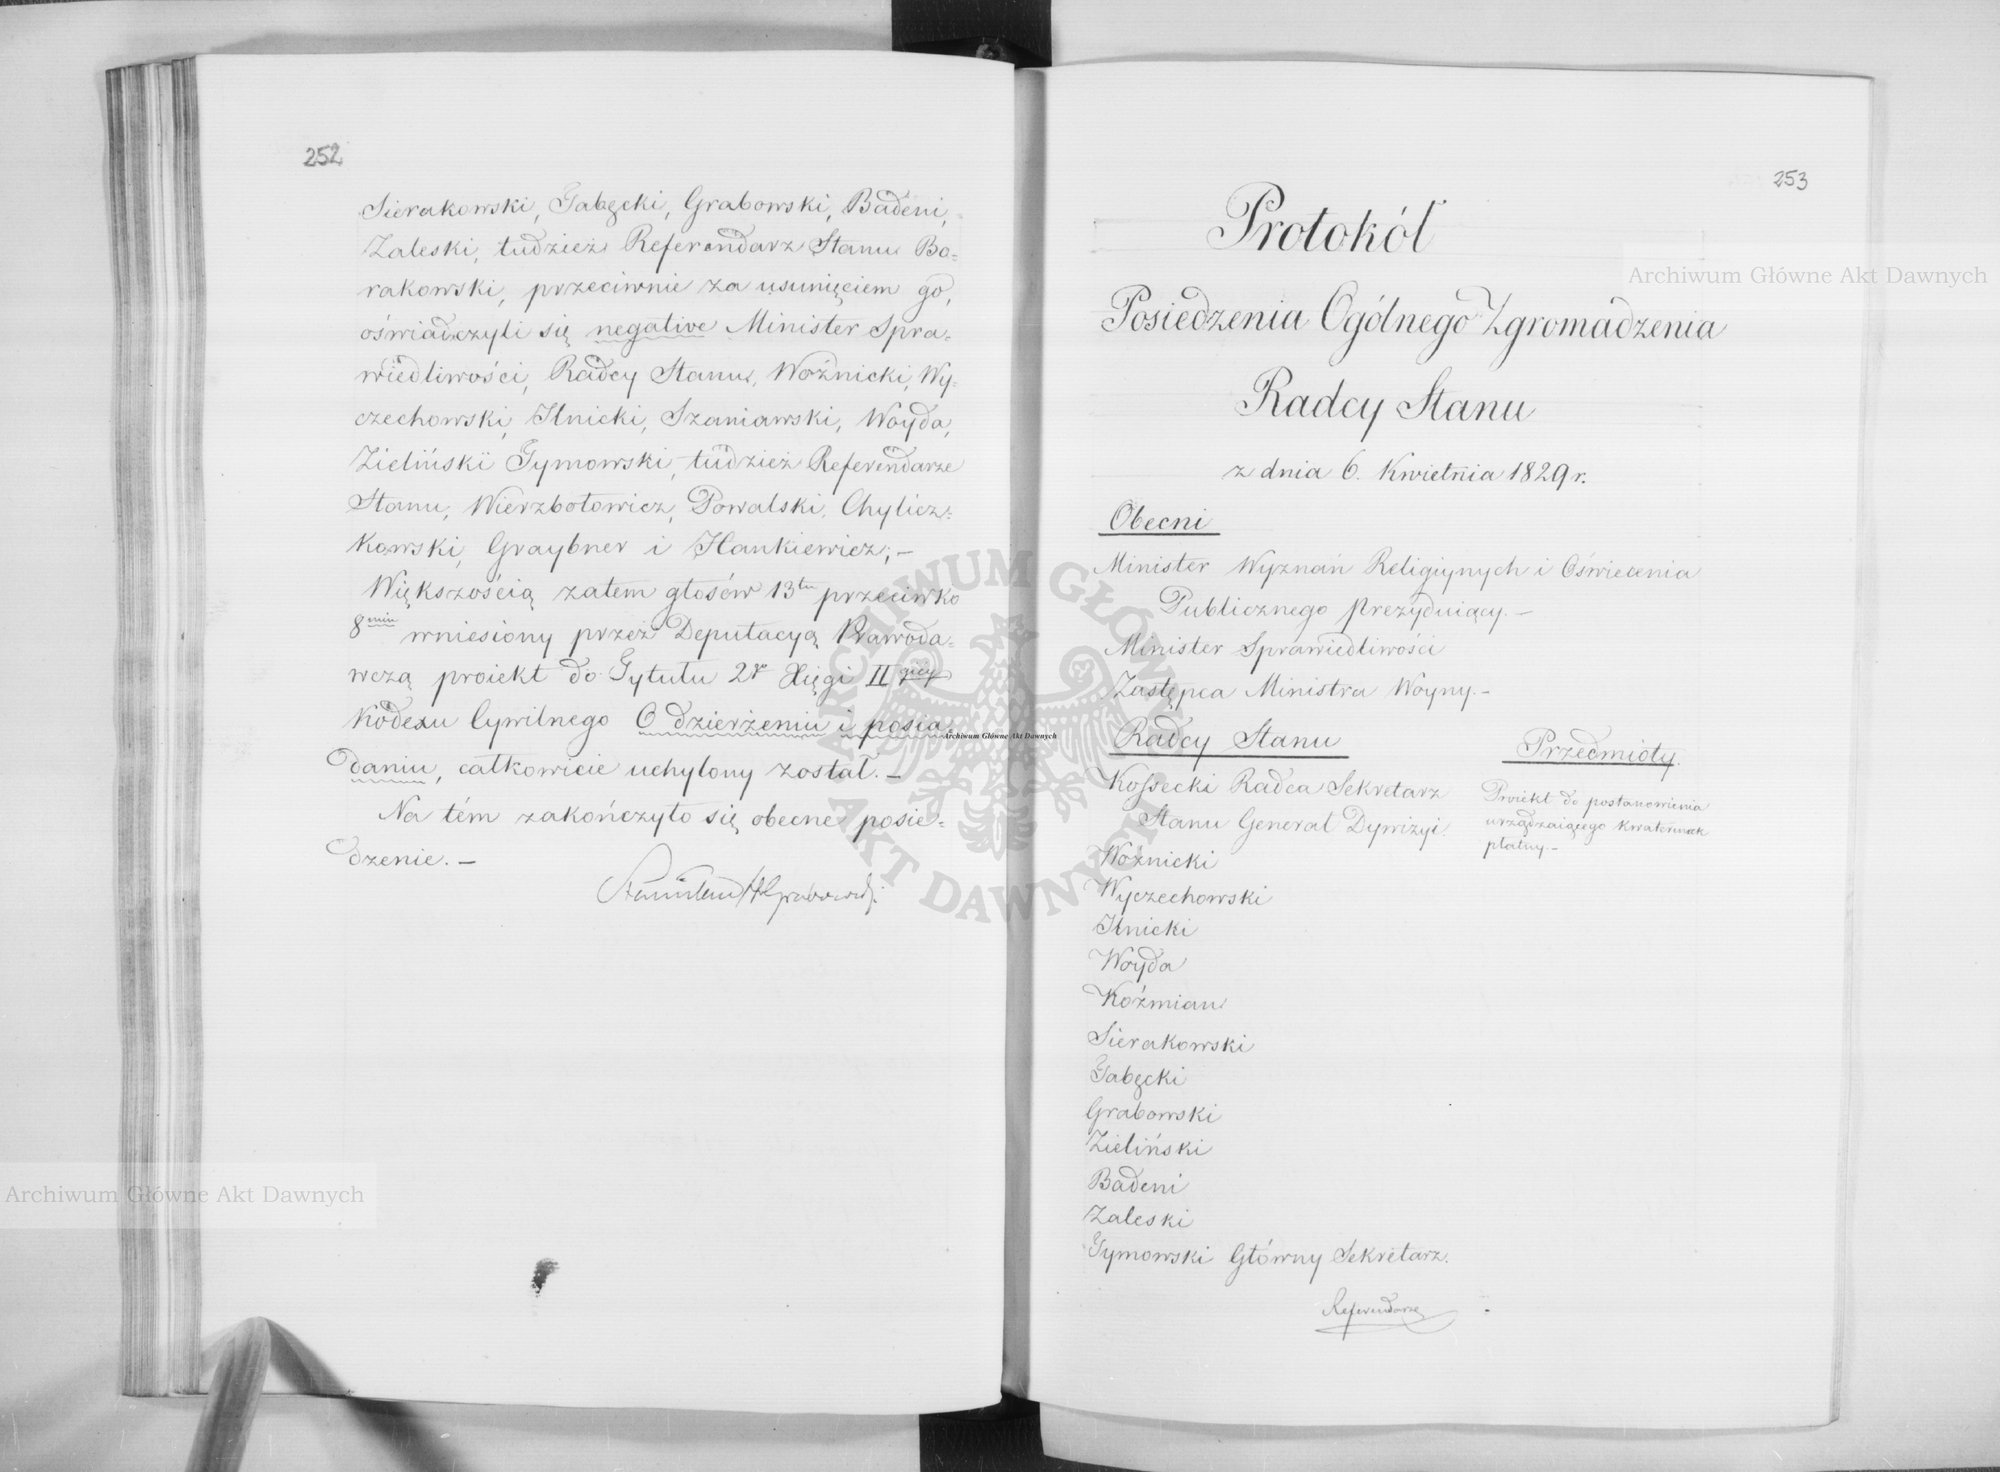 252
Sierakowski, Tabęcki, Grabowski, Badeni,
Zaleski, tudzież Referendarz Stanu Bo-
rakowski, przeciwnie za usunięciem go,
oświadczyli się negative Minister Spra-
wiedliwości, Radcy Stanu, Woźnicki, Wy-
czechowski, Ilnicki, Szaniawski, Woyda,
Zieliński Tymowski, tudzież Referendarze
Stanu, Wierzbołowicz, Powalski, Chylicz-
kowski, Graybner i Hankiewicz; –
Większością zatem głosów 13tu przeciwko
8miu wniesiony przez Deputacyą Prawoda-
wczą proiekt do Tytułu 2go Xięgi IIgiey
Kodexu Cywilnego O dzierżeniu i posia-
daniu, całkowicie uchylony został. –
Na tém zakończyło się obecne posie-
dzenie. –
Stanisław Hr Grabowski
253
Protokół
Posiedzenia Ogólnego Zgromadzenia
Radcy Stanu
z dnia 6. Kwietnia 1829 r.
Obecni
Minister Wyznań Religiynych i Oświecenia
Publicznego Prezyduiący. –
Minister Sprawiedliwości
Zastępca Ministra Woyny. –
Radcy Stanu
Kossecki Radca Sekretarz
Stanu Generał Dywizyi.
Woźnicki
Wyczechowski
Ilnicki
Woyda
Koźmian
Sierakowski
Tabęcki
Grabowski
Zieliński
Badeni
Zaleski
Tymowski Główny Sekretarz.
Referendarze
Przedmioty.
Proiekt do postanowienia
urządzaiącego kwaterunek
płatny. –
Archiwum Główne Akt Dawnych
Archiwum Główne Akt Dawnych
Archiwum Główne Akt Dawnych
ARCHIWUM GŁÓWNE
AKT DAWNYCH